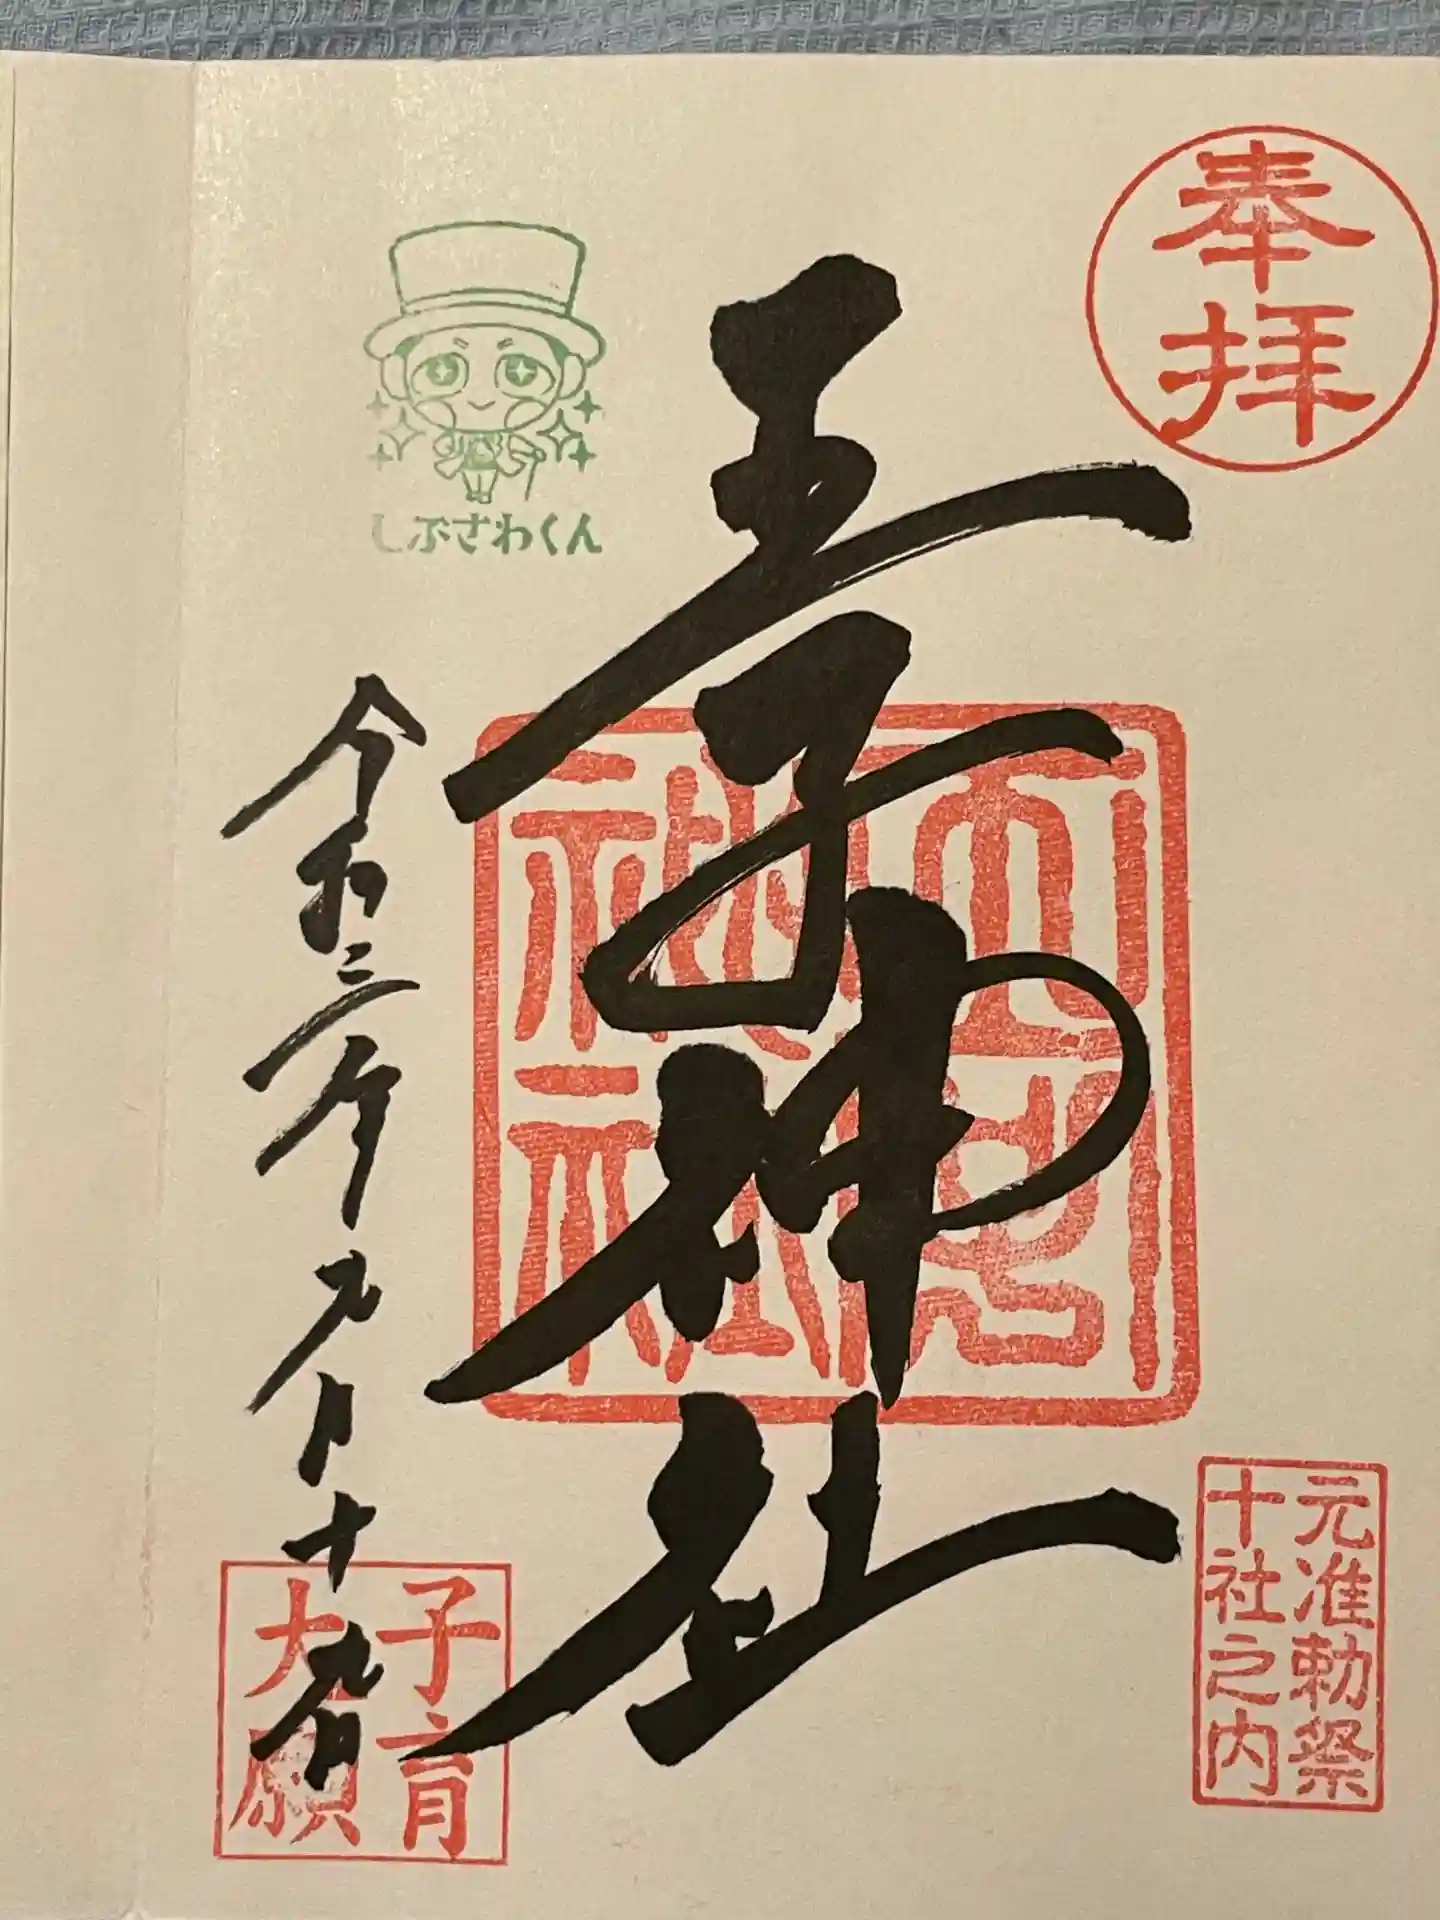 奉拝
王子神社
王子神社
元准勅祭
十社之内
しぶさわくん
令和三年九月十九日
子育
大願